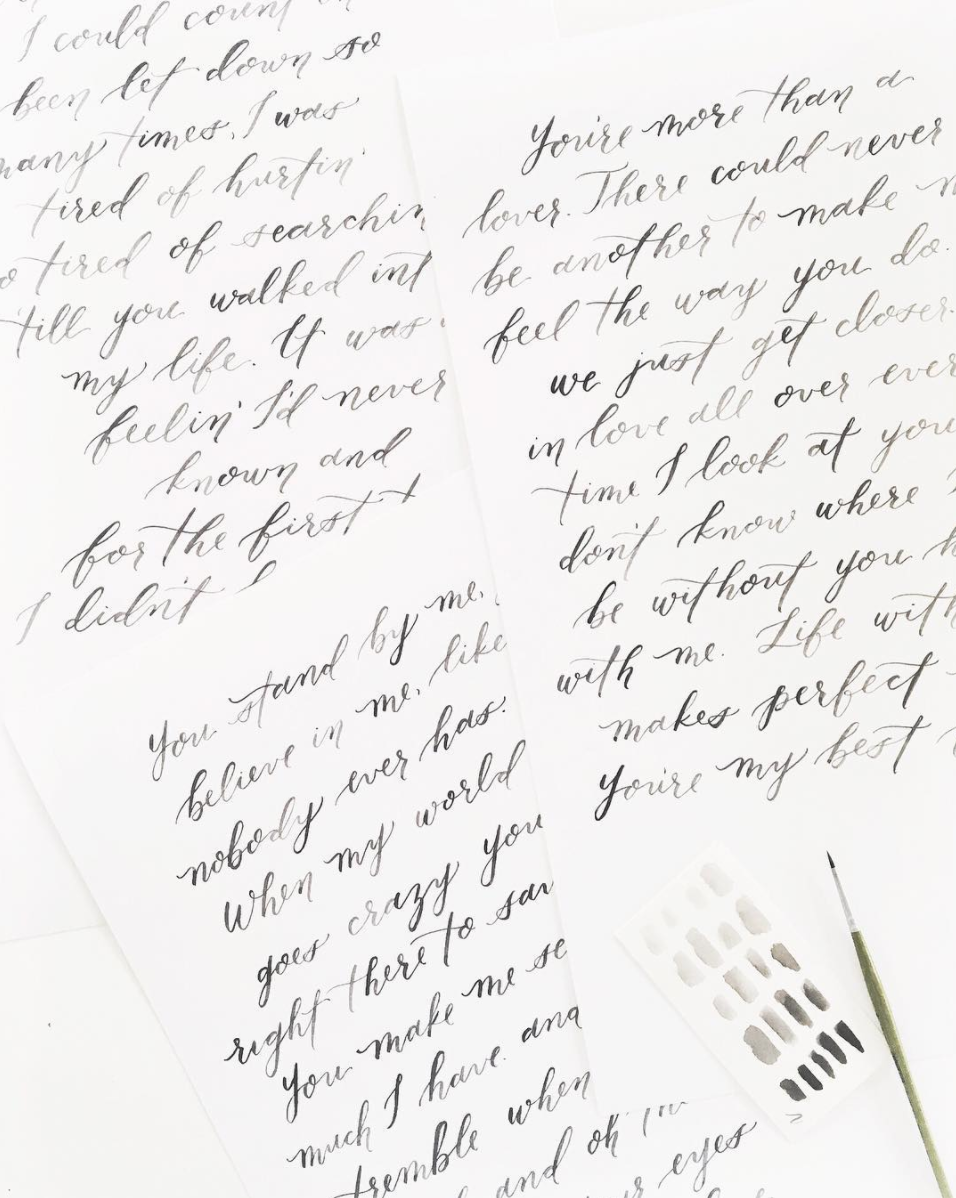 I could count
been let down so
many times, I was
tired of hurtin'
tired of searchin
'till you walked int
my life. It was
feelin' I'd never
known and
for the first t
I didn't
You stand by me,
believe in me, like
nobody ever has.
When my world
goes crazy you
right there to sav
You make me se
much I have and
tremble when
and oh I'm
eyes
You're more than a
lover. There could never
be another to make m
feel the way you do.
we just get closer.
in love all over ever
time I look at you
don't know where I
be without you h
with me. Life with
makes perfect
You're my best